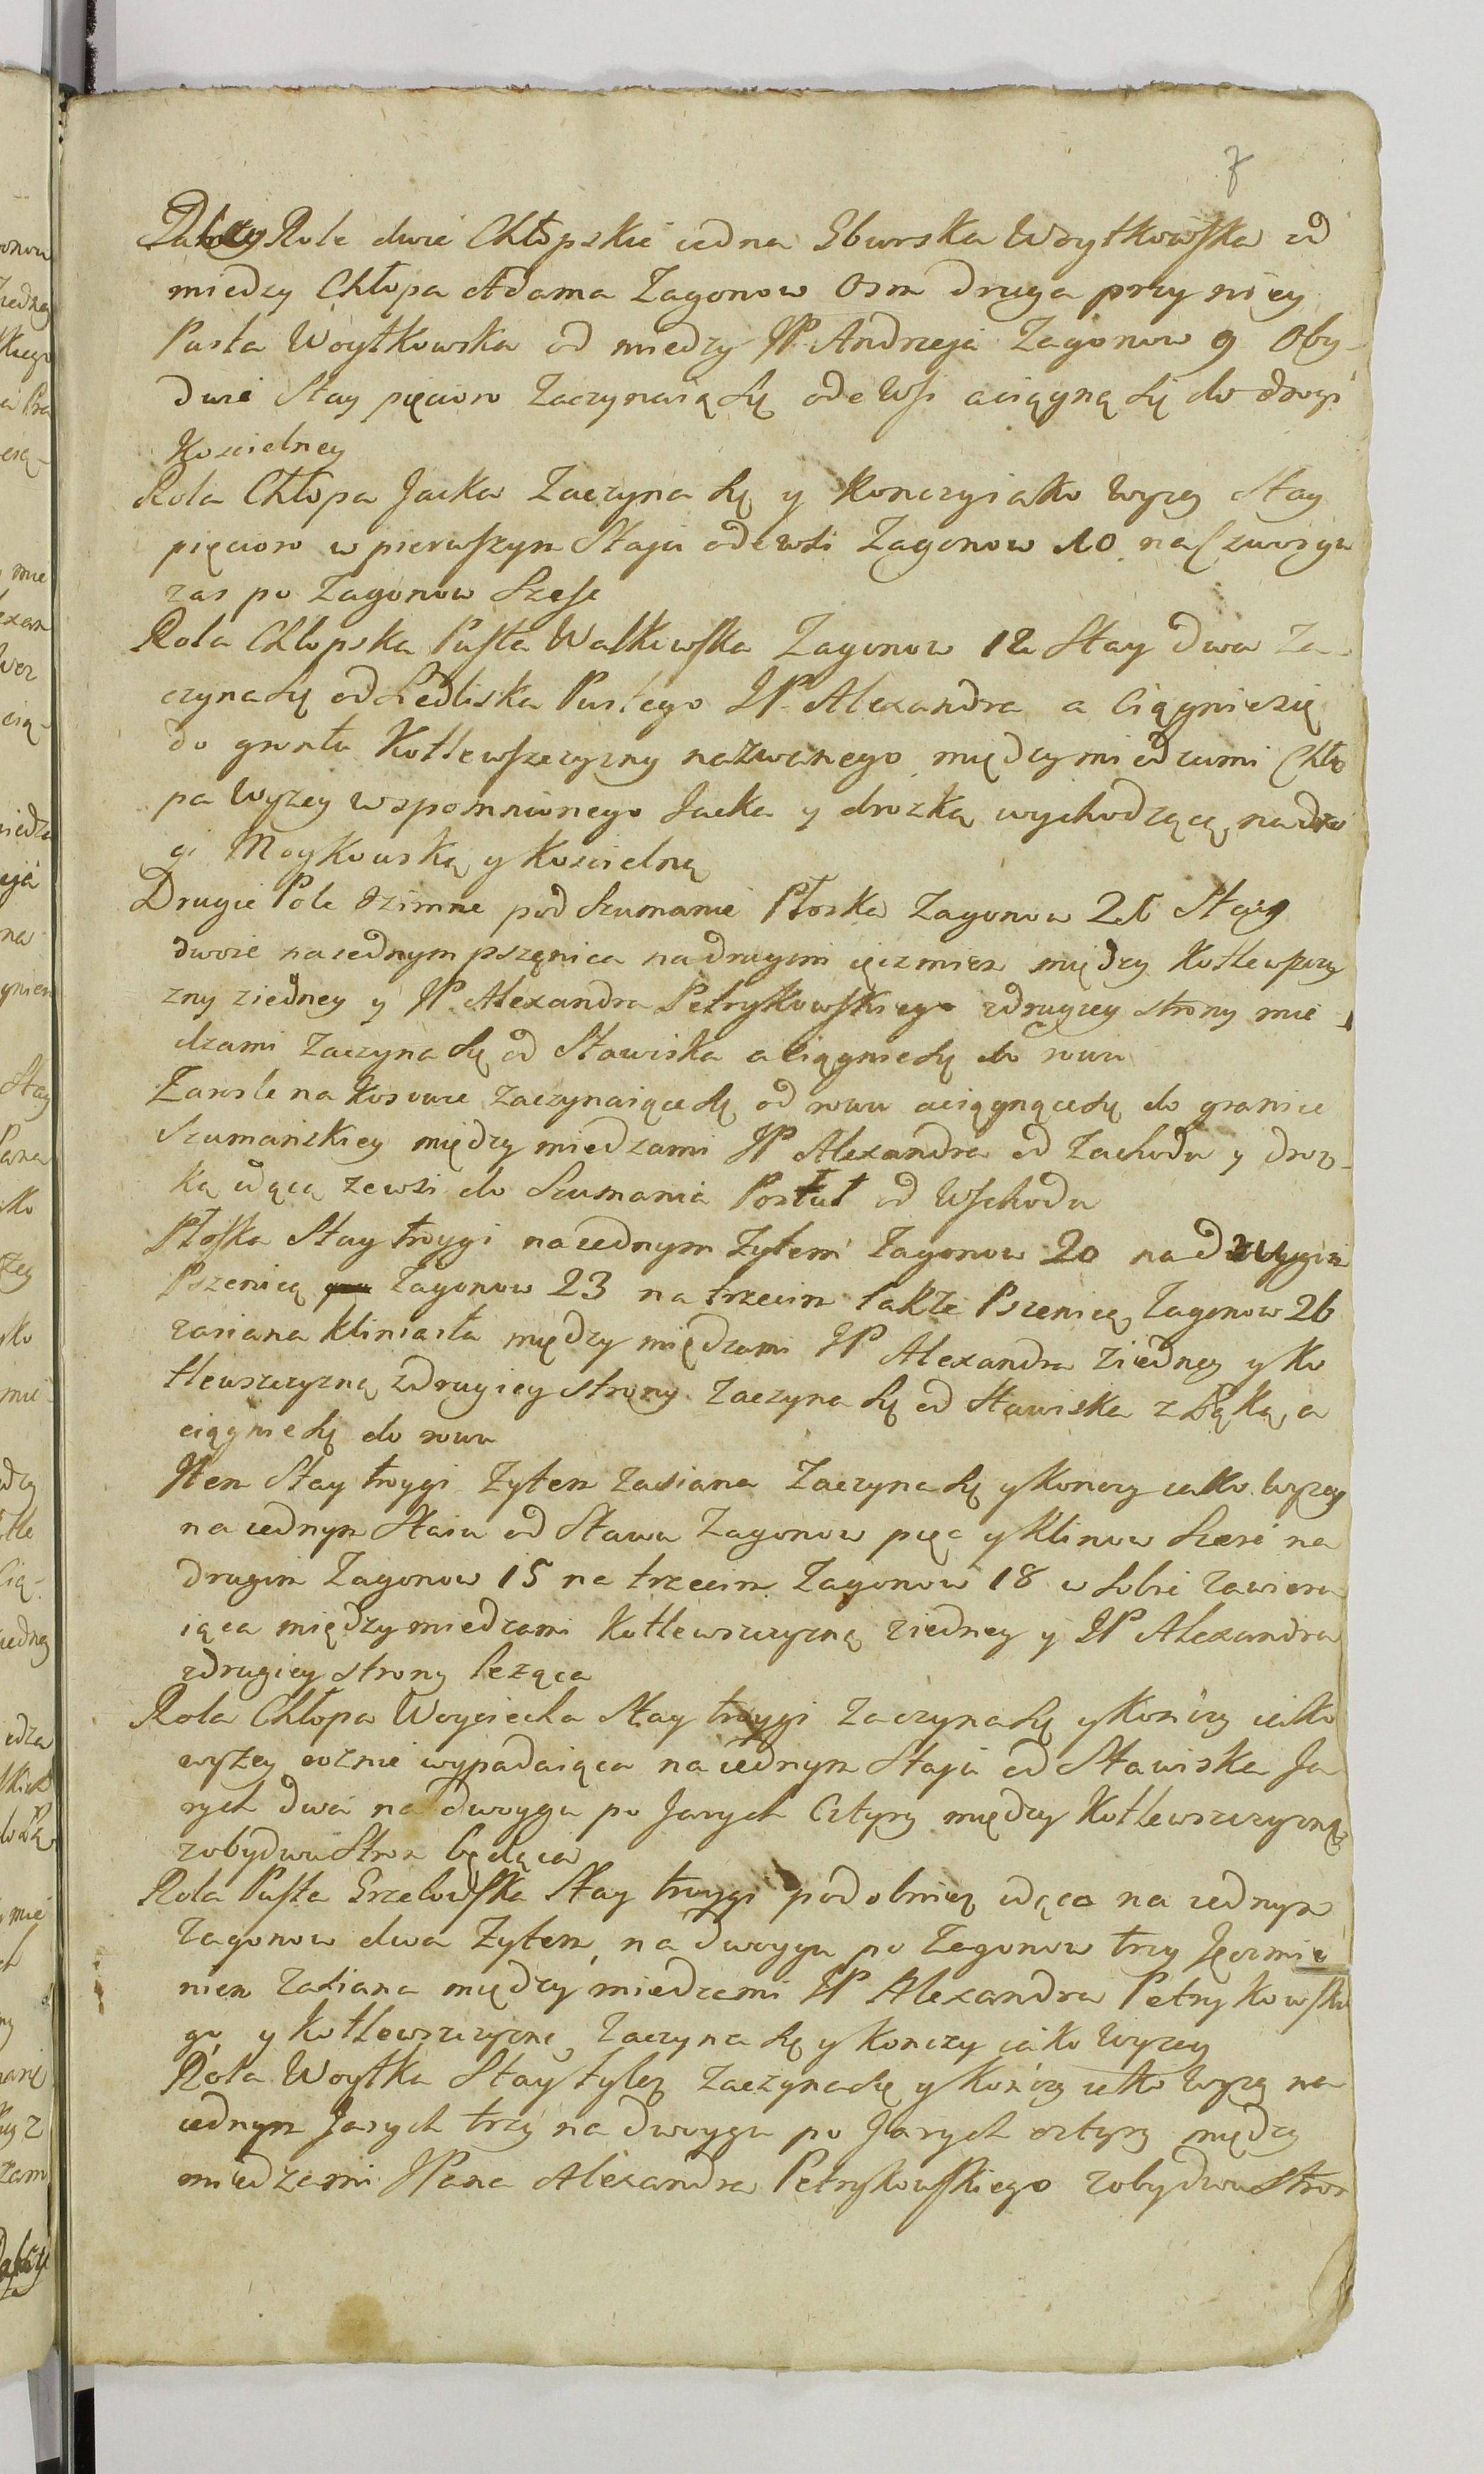 7
Role dwie Chłopskie iedna Gburska Woytkowska od
miedzy Chłopa Adama Zagonow Osm druga przy niey
Pusta Woytkowska od miedzy JP. Andrzeja Zagonow 9 Oby-
dwie Stay pięcioro Zaczynaią się ode Wsi a ciągną się do drogi
Koscielney
Rola Chłopa Jacka Zaczyna się y Konczy iako Wyzey Stay
pięcioro w pierwszym Staju ode wsi Zagonow 10 na Czworgu
zas po Zagonow Szesc
Rola Chłopska Pusta Walkowska Zagonow 12 Stay dwa Za-
czyna się od Siedliska Pustego JP. Alexandra a Ciągnie się
do gruntu Kotlewszczyzny nazwanego między miedzami Chło
pa Wyzey wspomnionego Jacka y drozką wychodzącą na dro
gę Moykowską y Koscielną
Drugie Pole Ozimne pod Szumanie Płoska Zagonow 21 Stay
dwoie na iednym pszęnica na drugim ięczmien między Kotlewszczy
zny ziedney y JP. Alexandra Petrykowskiego z drugiey strony mie
dzami Zaczyna się od Stawiska a ciągnie się do rowu
Zarosle na Kosowce zaczynaiące się od rowu a ciągnące się do granice
Szumańskiey między miedzami JP Alexandra od Zachodu y droz-
ką idącą ze wsi do Szumania Postul od Wschodu
Płoska Stay troygi na iednym Zytem Zagonow 20 na drugim
Pszenicą Zagonow 23 na trzecim także Pszenicą Zagonow 26
zasiana kliniasta między miedzami JP Alexandra ziedney y Ko
tlewszczyzną z drugiey strony Zaczyna się od Stawiska z Łąką, a
ciągnie się do rowu
Item Stay troygi Zytem zasiana Zaczyna się y Konczy iako wyzey
na iednym Staiu od Stawu Zagonow pięc y Klinow Szesć na
drugim Zagonow 15 na trzecim Zagonow 18 w sobie zawiera
iąca między miedzami Kotlewszczyzną ziedney y JP Alexandra
z drugiey strony leząca
Rola Chłopa Woyciecha Stay troygi zaczyna się y Kończy iako
wyzey roznie wypadaiąca na iednym Staju od Stawiska Ja
rych dwa na dwoygu po Jarych Cztyry między Kotlewszczyzną
z obydwu Stron będąca
Rola Pusta Grzelowska Stay troygi podobniez idąca na iednym
zagonow dwa Zytem, na dwoygu po Zagonow trzy Jęczmie
niem zasiana między miedzami JP Alexandra Petrykowskie
go y Kotlewszczyzne, Zaczyna się y Konczy iako Wyzey
Rola Woytka Stay tylez zaczyna się y Kończy iako Wyzey na
iednym Jarych trzy na dwoygu po Jarych cztyry między
miedzami JPana Alexandra Petrykowskiego z obydwu Stron